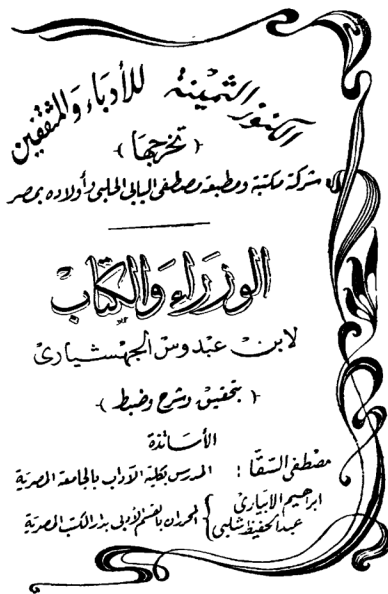 الكنوز الثمينة للأدباء والمثقفين
﴿ تخرجها ﴾
شركة مكتبة ومطبعة مصطفى البابى الحلبى وأولاده بمصر
الوزراء والكتاب
لابن عبدوس الجهشيارى
﴿ بتحقيق وشرح وضبط ﴾
الأساتذة
مصطفى السقا : المدرس بكلية الآداب بالجامعة المصرية
ابرهيم الابيارى
عبد الحفيظ شلبى } المحرران بالقسم الأدبى بدار الكتب المصرية